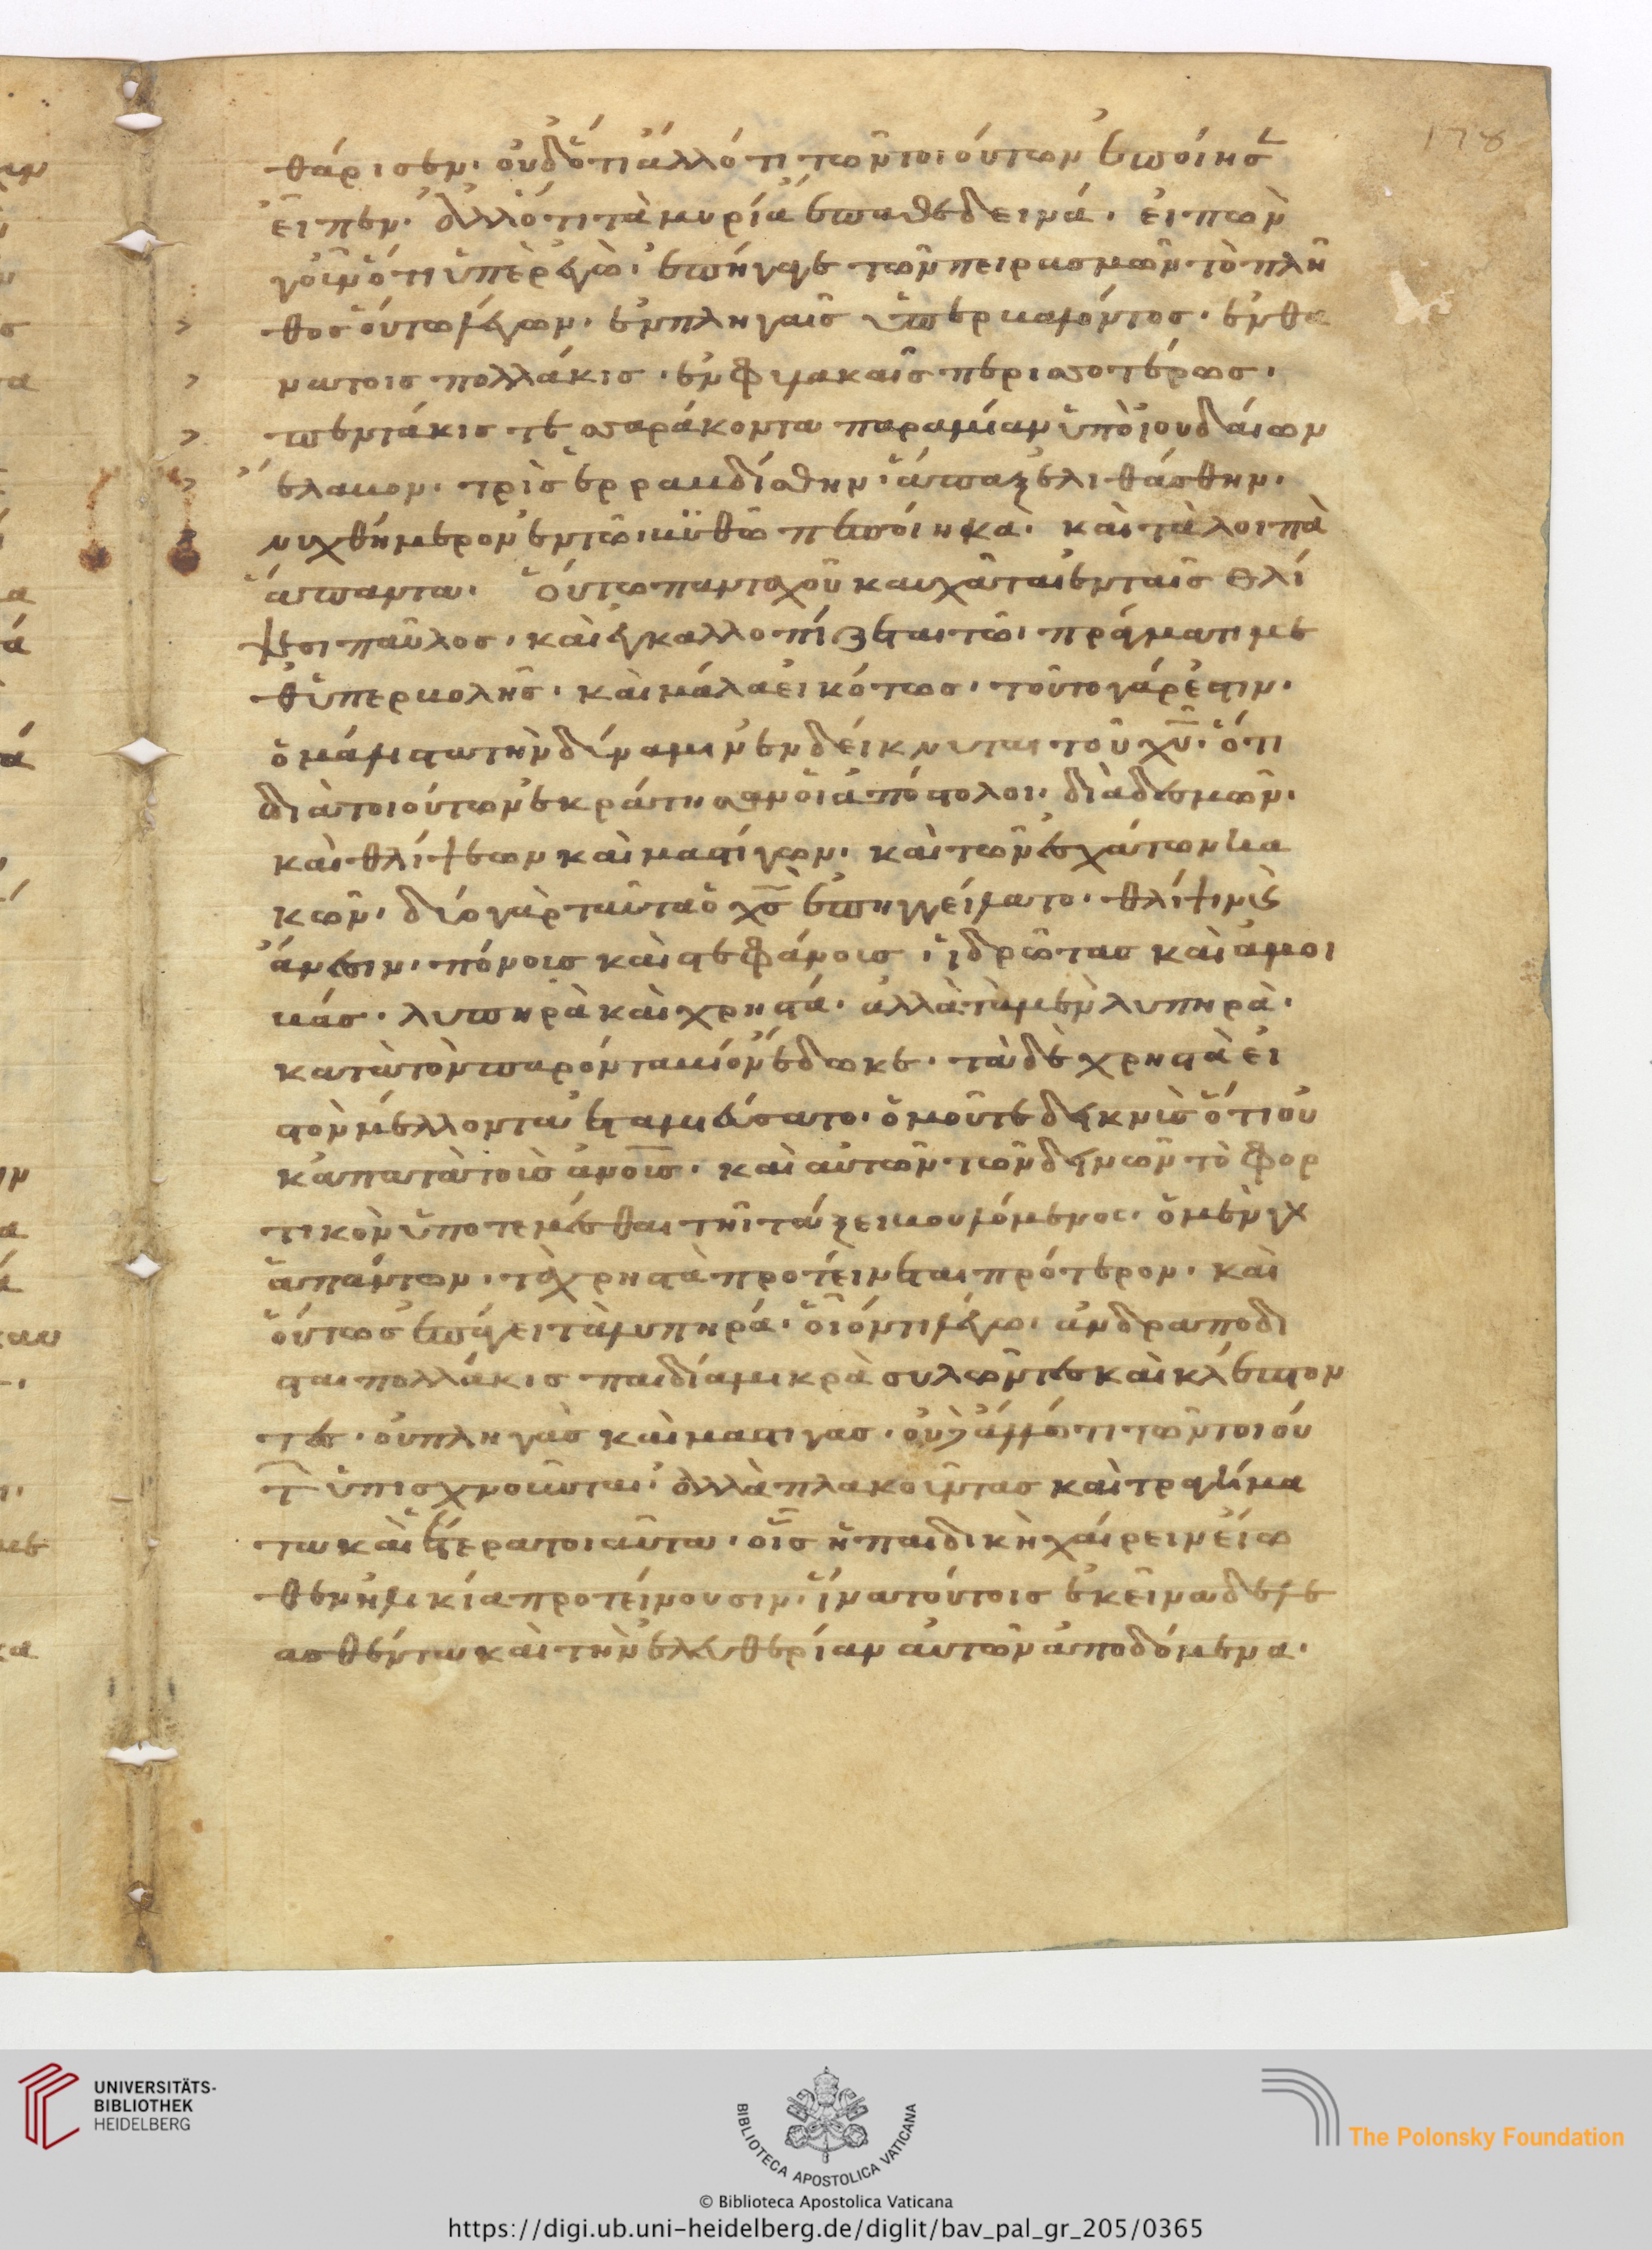 178
θάρισεν· οὐδ' ὅτι ἄλλό τι τῶν τοιούτων ἐποίησ
εἶπεν· ἀλλ' ὅτι τὰ μυρία ἔπαθε δεινά· εἰπὼν
γοῦν ὅτι ὑπερ ἐγὼ· ἐπήγαγε τῶν πειρασμῶν τὸ πλῆ
θος οὕτω λέγων· ἐν πληγαῖς ὑπερβαλλόντως· ἐν θα
νάτοις πολλάκις· ἐν φυλακαῖς περισσοτέρως·
πεντάκις τεσσαράκοντα παρὰ μίαν ὑπὸ ἰουδαίων
ἔλαβον· τρὶς ἐρραβδίσθην· ἅπαξ ἐλιθάσθην·
νυχθήμερον ἐν τῷ βυθῷ πεποίηκα· καὶ τὰ λοιπὰ
ἅπαντα· Οὕτω πανταχοῦ καυχᾶται ἐν ταῖς θλί
ψεσι παῦλος· καὶ ἐγκαλλοπίζεται τῷ πράγματι με
θ' ὑπερβολῆς· καὶ μάλα εἰκότως· τοῦτο γάρ ἐστιν·
ὃ μάλιστα τὴν δύναμιν ἐνδείκνυται τοῦ χῦ· ὅτι
διὰ τοιούτων ἐκράτησαν οἱ ἀπόστολοι· διὰ δεσμῶν·
καὶ θλίψεων καὶ μαστίγων· καὶ τῶν ἐσχάτων κα
κῶν· δύο γὰρ ταῦτα ὁ χς ἐπηγγείλατο· θλίψιν καὶ
ἄνεσιν· πόνοις καὶ στεφάνοις· ἱδρῶτας καὶ ἀμοι
βάς· λυπηρὰ καὶ χρηστά· ἀλλὰ τὰ μὲν λυπηρὰ·
κατὰ τὸν παρόντα βίον ἔδωκε· τὰ δὲ χρηστὰ εἰ
ς τὸν μέλλοντα ἐταμιεύσατο· ὁμοῦ τε δεικνὺς ὅτι οὐ
κ ἀπατᾷ τοὺς ἀνους· καὶ αὐτῶν τῶν δεινῶν τὸ φορ
τικὸν ὑποτεμέσθαι τῇ τάξει βουλόμενος· ὁ μὲν γὰρ
ἀπατῶν· τὰ χρηστὰ προτείνεται πρότερον· καὶ
οὕτως ἐπάγει τὰ λυπηρά· οἷόν τι λέγω· ἀνδραποδι
σταὶ πολλάκις παιδία μικρὰ συλῶντες καὶ κλέπτον
τες· οὐ πληγὰς καὶ μάστιγας· οὐδ' ἄλλό τι τῶν τοιού
των ὑπισχνοῦνται· ἀλλὰ πλακοῦντας καὶ τραγήμα
τα καὶ ἕτερα τοιαῦτα· οἷς ἡ παιδικὴ χαίρειν εἴω
θεν ἡλικία προτείνουσιν· ἵνα τούτοις ἐκεῖνα δελε
ασθέντα καὶ τὴν ἐλευθερίαν αὐτῶν ἀποδόμενα·
UNIVERSITÄTS-
BIBLIOTHEK
HEIDELBERG
BIBLIOTECA APOSTOLICA VATICANA
The Polonsky Foundation
© Biblioteca Apostolica Vaticana
https://digi.ub.uni-heidelberg.de/diglit/bav_pal_gr_205/0365